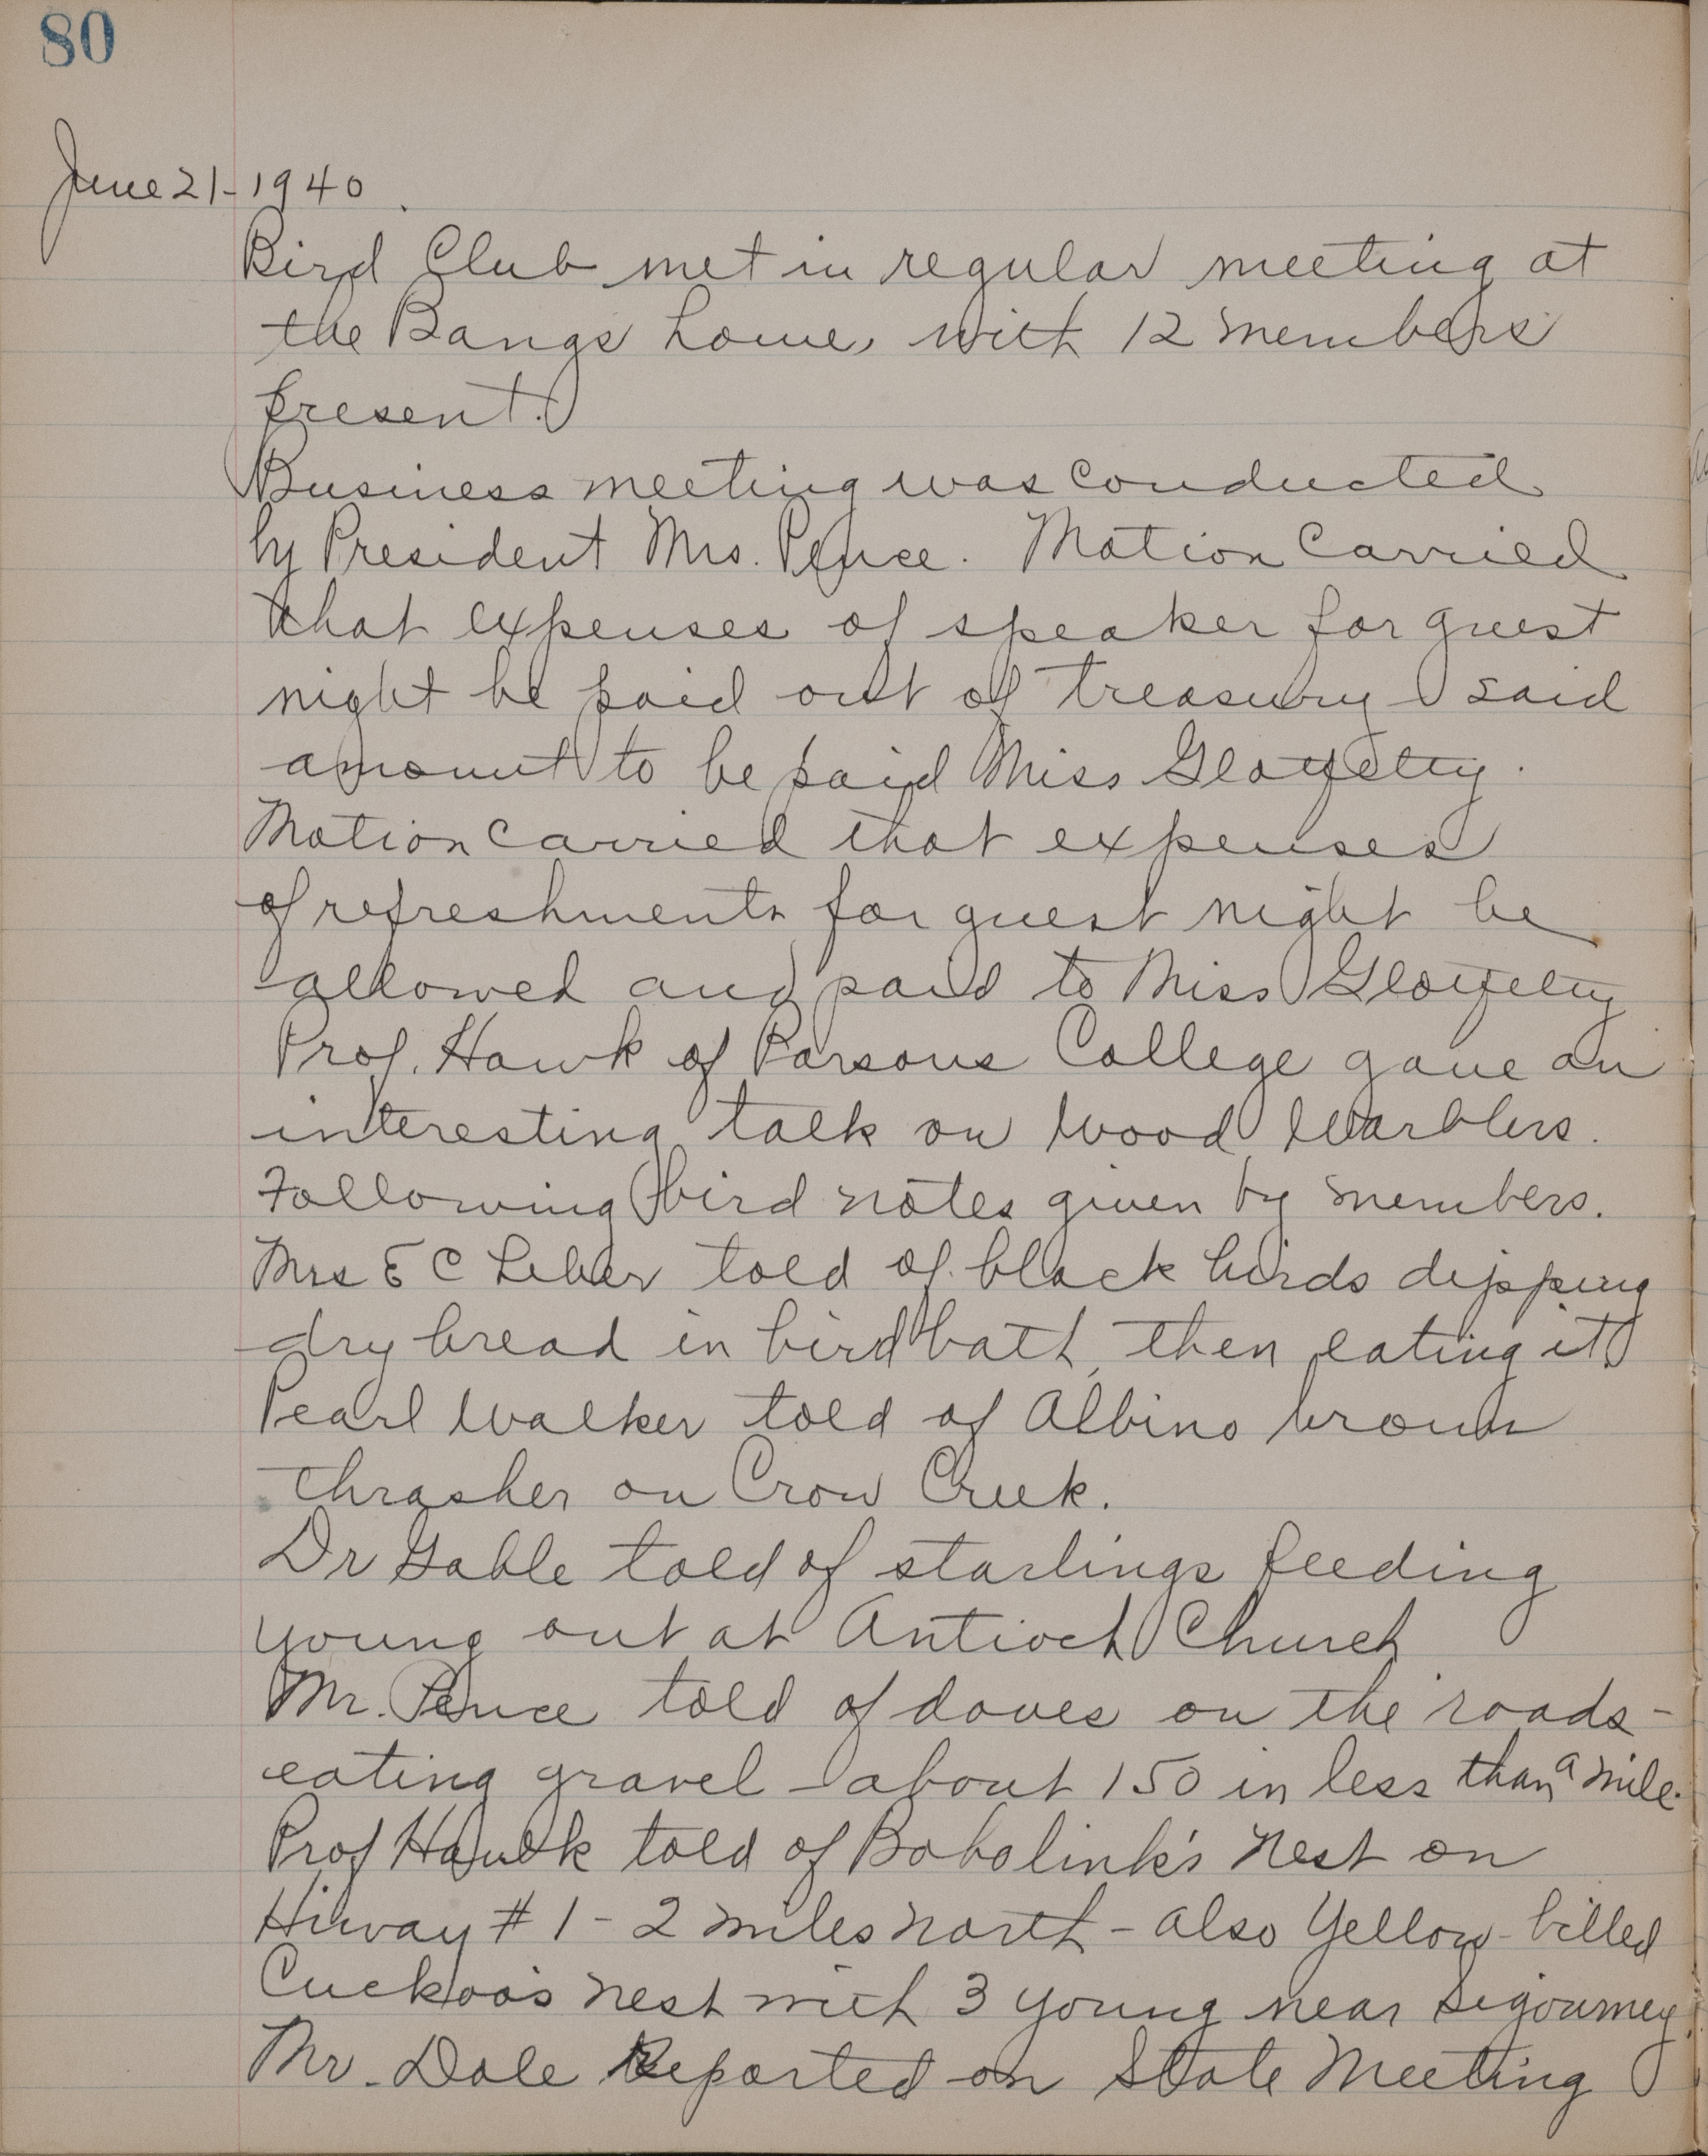 80
June 21-1940.
Bird Club met in regular meeting at
the Bangs home, with 12 members
present.
Business meeting was conducted
by President Mrs. Pence. Motion Carried
that expenses of speaker for guest
night be paid out of treasury - said
amount to be paid Miss Glotfelty.
Motion carried that expenses
of refreshments for guest night be
allowed and paid to Miss Glotfelty
Prof. Hawk of Parsons College gave an
interesting talk on Wood Warblers.
Following bird notes given by members.
Mrs E C told of black birds dipping
dry bread in bird bath, then eating it
Pearl Walker told of Albino brown
thrasher on Crow Creek.
Dr Gable told of starlings feeding
young out at Antioch Church
Mr. Pence told of doves on the roads -
eating gravel - about 150 in less than a mile.
Prof Hawk told of Bobolink's Nest on
Hiway # 1 - 2 miles north - also Yellow-billed
Cuckoo's nest with 3 young near Sigourney.
Mr. Dole Reported on State Meeting